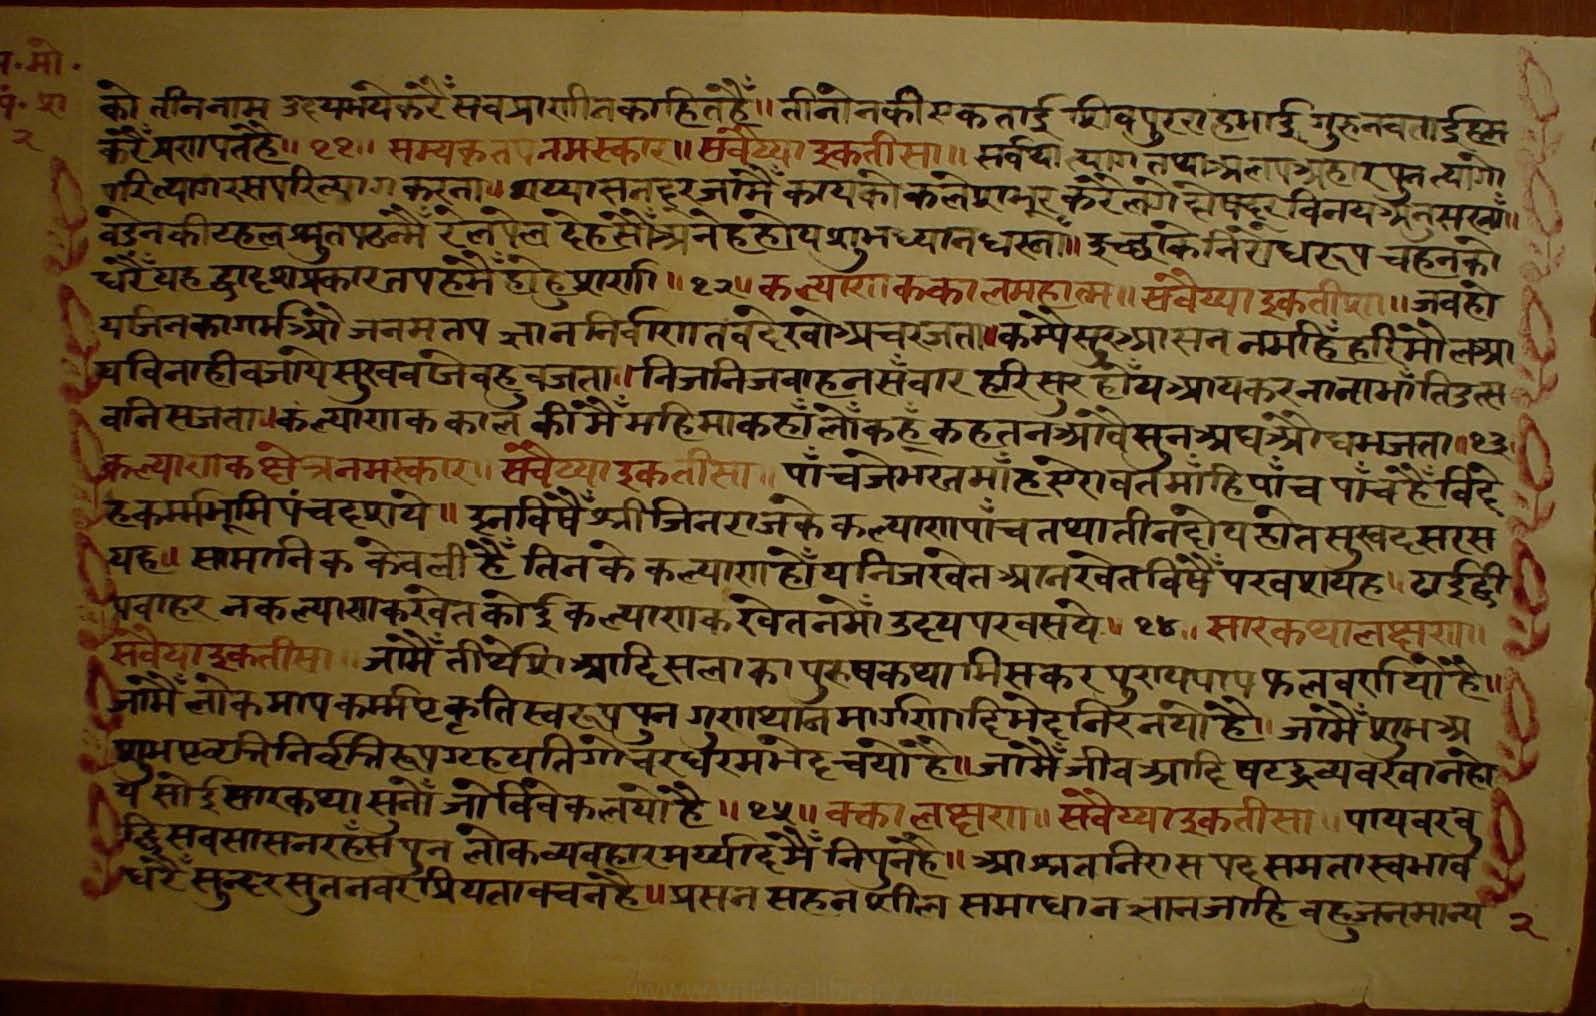 प. मो.
पं. रा
२
को तीन नाम उदय भये करैँ सब प्राणीन का हित हैँ॥ तीनोन की एकताई शिवपुर राह भाई गुरु नवताई हम
करैँ प्रणपत है॥ ११॥ सम्यक तप नमस्कार॥ सवैय्या इकतीसा॥ सर्वथा त्याग तथा अलप अहार पुन त्यागो
परित्याग रस परित्याग करना॥ शय्यासन दूर जामैँ काय को कलेश भूर करै लगे दोष दूर विनय अनुसरनाँ॥
बडेन की टहल श्रुत पठन मैँ देह सौँ अनेह होय शुभ ध्यान धरनाँ॥ इच्छा के निरोध रूप चहन को
धरैँ यह द्वादश प्रकार तप हमैँ होहु शरण॥ १२॥ कल्याणक काल महात्म॥ सवैय्या इकतीशा॥ जब हो
य जिन का गर्भ औ जनम तप ज्ञान निर्वाण तब देखो अचरजता॥ कम्पै सुर आसन नमहिँ हरि मौल आ
य विना ही बजाये सुख बजे बहु बजता॥ निज निज वाहन सँवार हरि सुर होँय आय कर नाना भाँति उत्स
वनि सजता॥ कल्याणक काल की मैँ महिमा कहाँ लौँ कहूँ कहत न आवै सुन अघ औघ भजता॥ १३
कल्याणक क्षेत्र नमस्कार॥ सवैय्या इकतीसा॥ पाँच जे भरत माँह ऐरावत माँहि पाँच पाँच हैँ विदे
ह कर्म्मभूमि पंचदश ये॥ इन विषैँ श्री जिनराज के कल्याण पाँच तथा तीन दोय होत सुखद सरस
यह॥ सामानिक केवली हैँ तिन के कल्याण होँय निज खेत आन खेत विषैँ परवश यह॥ ढाई द्वी
प बाहर न कल्याणक खेत कोई कल्याणक खेत नमोँ उदय परव सये॥ १४॥ सार कथा लक्षण॥
सवैया इकतीसा॥ जामैँ तीर्थेश आदि सलाका पुरुष कथा मिस कर पुण्य पाप फल वर्णयो है॥
जामैँ लोक माप कर्म्म प्रकृति स्वरूप पुन गुणथान मार्गणादि भेद निरनयो है॥ जामैँ शुभ अ
शुभ प्रव्रत्ति निर्वृत्ति रूप ग्रह यति गोचर धरम भेद चयो है॥ जामैँ जीव आदि षट द्रव्य वखान हो
य सोई सार कथा सतौँ जो विवेक लयो है॥ १५॥ वक्का लक्षण॥ सवैय्या इकतीसा॥ पाय वर बु
द्धि सब सासन रहँस पुन लोक व्यवहार मर्य्यादि मैँ निपुन है॥ आश्रत निरास पद समता स्वभाव
धरैँ सुन्दर सुतन वर प्रियता वचन है॥ प्रसन सहनशील समाधान ज्ञान जाहि बहु जन मान्य
२